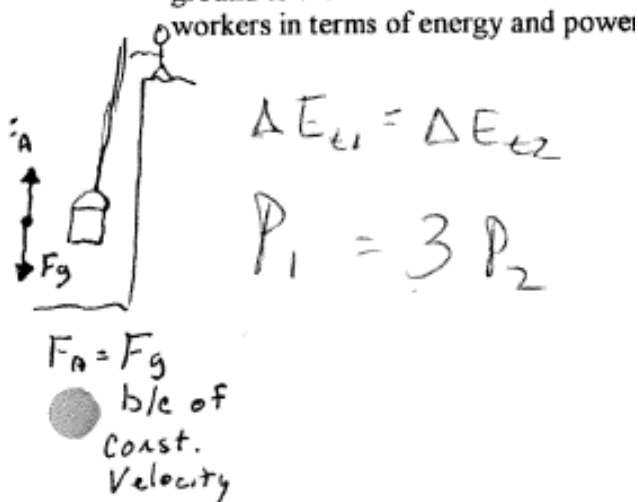 workers in terms of energy and power
ΔE_t1 = ΔE_t2
P_1 = 3 P_2
A
Fg
F_A = Fg
b/c of
const.
Velocity